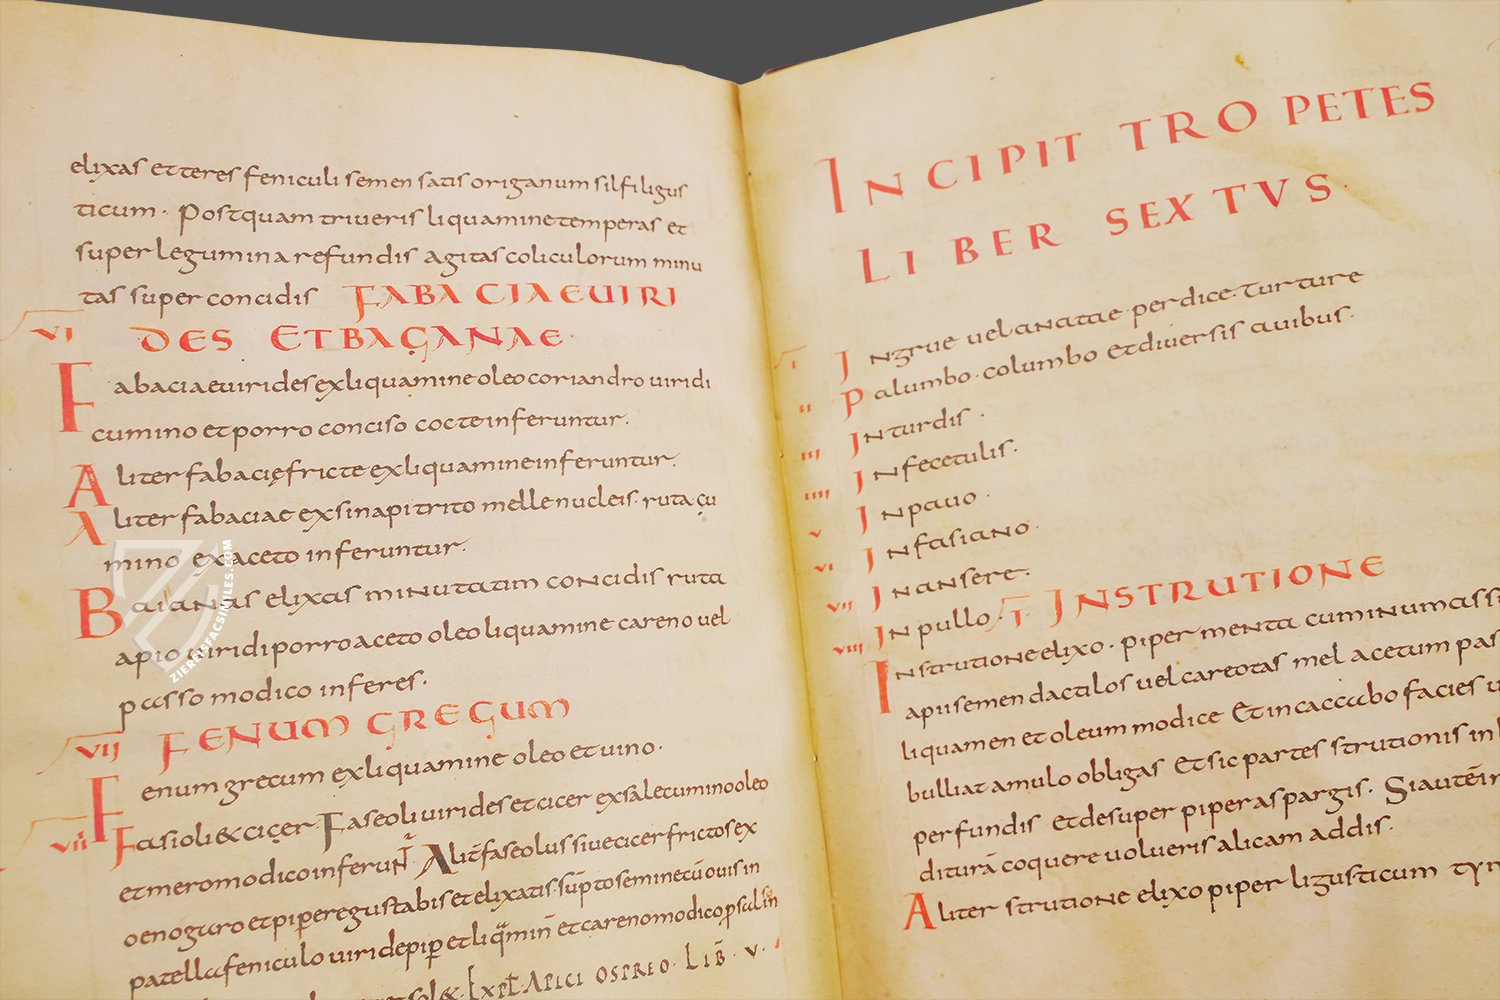 elixas et teres feniculi semen satis origanum silfi ligus
ticum · Postquam triveris liquamine temperas et
super legumina refundis agitas coliculorum minu
tas super concidis FABACIAE VIRI
VI DES ET BAGANAE ·
Fabaciae uirides ex liquamine oleo coriandro uiridi
cumino et porro conciso cocte inferuntur .
Aliter fabacię fricte ex liquamine inferuntur .
Aliter fabaciae ex sinapi trito melle nucleis · ruta cu
mino ex aceto inferuntur .
Baianas elixas minutatim concidis ruta
apio uiridi porro aceto oleo liquamine careno uel
passo modico inferes .
VII FENUM GRECUM
Fenum grecum ex liquamine oleo et uino .
VIII Fasioli & cicer · Faseoli uirides et cicer ex sale cumino oleo
et mero modico inferunt Alit faseolus siue cicer frictos ex
oenogaro et pipere gustabis et elixatis sūpto semine cū ouis in
patella feniculo uiride pip et liq̄min et careno modico
Expl Apici ospreo · Lib · V ·
INCIPIT TROPETES
LIBER SEXTVS ·
I In grue uel anatae perdice · turture
II Palumbo · columbo et diuersis auibus ·
III In turdis ·
IIII In fecetulis ·
V In pauo ·
VI In fasiano ·
VII In ansere .
VIII In pullo · I · INSTRUTIONE
In strutione elixo · piper menta cuminum assu
apii semen dactilos uel careotas mel acetum pas
liquamen et oleum modice Et in caccabo facies u
bulliat amulo obligas Et sic partes strutionis in l
perfundis et desuper piper aspargis · Si autēin
diturā coquere uolueris alicam addis .
Aliter strutione elixo piper ligusticum tym
ZIEREISFACSIMILES.COM